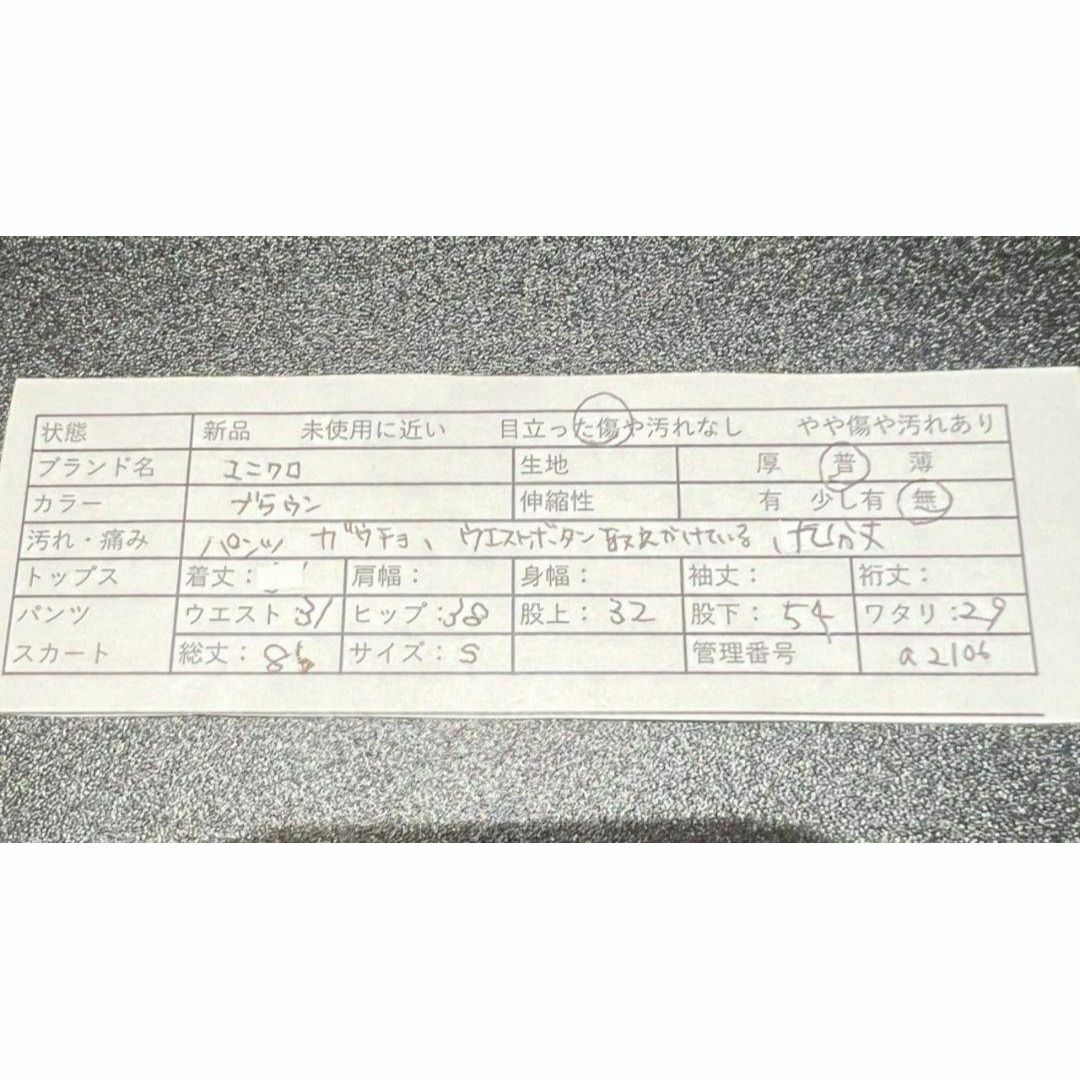 状態 新品 未使用に近い 目立った傷や汚れなし やや傷や汚れあり
ブランド名 ユニクロ 生地 厚 普 薄
カラー ブラウン 伸縮性 有 少し有 無
汚れ・痛み パンツ ガウチョ、ウエストボタン取れかけている、九分丈
トップス 着丈: 肩幅: 身幅: 袖丈: 裄丈:
パンツ ウエスト:31 ヒップ:38 股上:32 股下:54 ワタリ:29
スカート 総丈: サイズ:S 管理番号 a2106